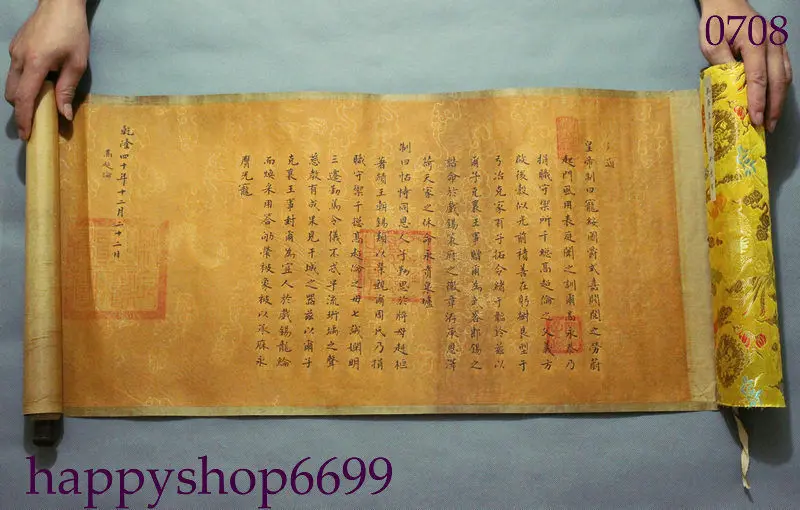 皇帝制曰寵綏國爵式嘉閥閱之勞蔚
起門風用表庭闈之訓爾高永泰乃
捐職守禦所千總高起倫之父義方
啟後穀似光前積善在躬樹良型于
弓冶克家有子拓令緒于韜鈐茲以
爾子克襄王事贈爾為武畧郎錫之
誥命於戲錫策府之徽章洊承恩澤
荷天家之休命永賁泉壚
制曰怙恃同恩人子勤思於將母赳桓
著績王朝錫類以榮親爾周氏乃捐
職守禦千總高起倫之母七誡嫻明
三遷勤篤令儀不忒早流珩瑀之聲
慈教有成果見干城之器茲以爾子
克襄王事封爾為宜人於戲錫龍綸
而煥采用答劬勞被象服以承庥永
膺光寵
乾隆四十年十二月二十二日
高起倫
0708
happyshop6699